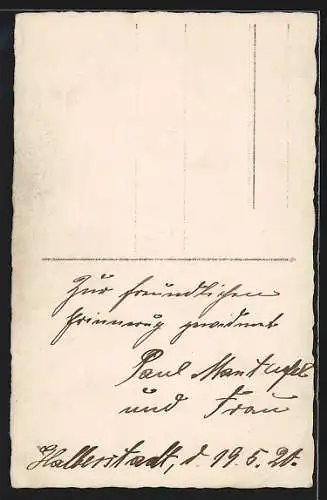 Zur freundlichen
Erinnerug gewidmet
Paul
und Frau
Halberstadt, d. 19.5.20.